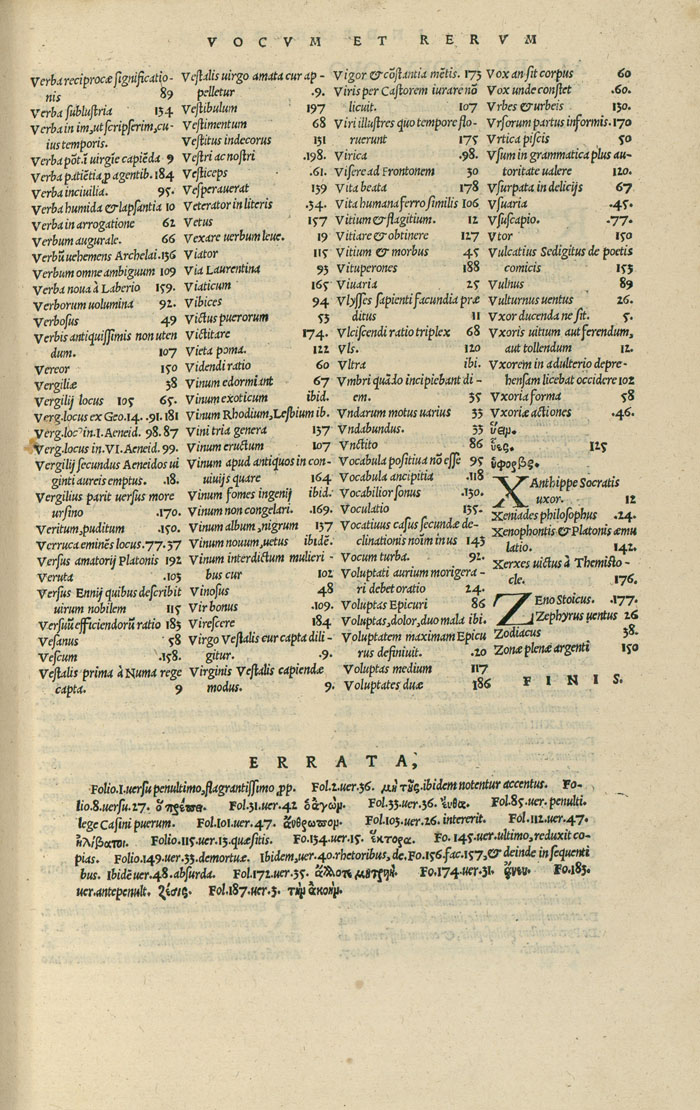 VOCVM ET RERVM
Verba reciprocæ significatio-
nis 89
Verba sublustria 134
Verba in im, ut scripserim, cu
ius temporis.
Verba pōt.i uirgīe capiēda 9
Verba patiētia, p agentib. 184
Verba inciuilia. 95.
Verba humida & lapsantia 10
Verba in arrogatione 62
Verbum augurale. 66
Verbū uehemens Archelai. 136
Verbum omne ambiguum 109
Verba noua à Laberio 159.
Verborum uolumina 92.
Verbosus 49
Verbis antiquissimis non uten
dum. 107
Vereor 150
Vergiliæ 38
Vergilij locus 105 65.
Verg.locus ex Geo.14. .91.181
Verg.loc⁹ in.I.Aeneid. 98.87
Verg.locus in.VI.Aeneid. 99.
Vergilij secundus Aeneidos ui
ginti aureis emptus. .18.
Vergilius parit uersus more
ursino .170.
Veritum, puditum .150.
Verruca eminēs locus .77.37
Versus amatorij Platonis 192
Veruta .103
Versus Ennij quibus describit
uirum nobilem 115
Versuū efficiendorū ratio 183
Vesanus 58
Vescum .158.
Vestalis prima à Numa rege
capta. 9
Vestalis uirgo amata cur ap-
pelletur .9.
Vestibulum 197
Vestimentum 68
Vestitus indecorus 131
Vestri ac nostri .198.
Vesticeps .61.
Vesperauerat 139
Veterator in literis .34.
Vetus 157
Vexare uerbum leue. 19
Viator 115
Via Laurentina 93
Viaticum 165
Vibices 94
Victus puerorum 53
Victitare 174.
Vieta poma. 122
Videndi ratio 60
Vinum edormiant 67
Vinum exoticum ibid.
Vinum Rhodium, Lesbium ib.
Vini tria genera 137
Vinum eructum 107
Vinum apud antiquos in con-
uiuijs quare 164
Vinum fomes ingenij ibid.
Vinum non congelari. .169.
Vinum album, nigrum 137
Vinum nouum, uetus ibidē.
Vinum interdictum mulieri-
bus cur 102
Vinosus 48
Vir bonus .109.
Virescere 184
Virgo Vestalis cur capta dili-
gitur. .9.
Virginis Vestalis capiendæ
modus. 9.
Vigor & cōstantia mētis. 173
Viris per Castorem iurare nō
licuit. 107
Viri illustres quo tempore flo-
ruerunt 175
Virica .98.
Visere ad Frontonem 30
Vita beata 178
Vita humana ferro similis 106
Vitium & flagitium. 12
Vitiare & obtinere 127
Vitium & morbus 45
Vituperones 188
Viuaria 25
Vlysses sapienti facundia præ
ditus 11
Vlciscendi ratio triplex 68
Vls. 120
Vltra ibi.
Vmbri quādo incipiebant di-
em. 35
Vndarum motus uarius 33
Vndabundus. 33
Vnctito 86
Vocabula positiua nō esse 95
Vocabula ancipitia .118
Vocabilior sonus .130.
Voculatio 135.
Vocatiuus casus secundæ de-
clinationis noīm in us 143
Vocum turba. 92.
Voluptati aurium morigera-
ri debet oratio 24.
Voluptas Epicuri 86
Voluptas, dolor, duo mala ibi.
Voluptatem maximam Epicu
rus definiuit. .20
Voluptas medium 117
Voluptates duæ 186
Vox an sit corpus 60
Vox unde constet .60.
Vrbes & urbeis 130.
Vrsorum partus informis. 170
Vrtica piscis 50
Vsum in grammatica plus au-
toritate ualere 120.
Vsurpata in delicijs 67
Vsuaria .45.
Vsuscapio. .77.
Vtor 150
Vulcatius Sedigitus de poetis
comicis 153
Vulnus 89
Vulturnus uentus 26.
Vxor ducenda ne sit. 5.
Vxoris uitium aut ferendum,
aut tollendum 12.
Vxorem in adulterio depre-
hensam licebat occidere 102
Vxoria forma 58
Vxoriæ actiones .46.
ὕαμ.
ὕες. 125
ὑφορβς.
XAnthippe Socratis
uxor. 12
Xeniades philosophus .24.
Xenophontis & Platonis æmu
latio. 142.
Xerxes uictus à Themisto-
cle. 176.
ZEno Stoicus. .177.
Zephyrus uentus 26
Zodiacus 38.
Zonæ plenæ argenti 150
FINIS.
ERRATA,
Folio.1.uersu penultimo, flagrantissimo, pp. Fol.2.uer.36. μητὸς. ibidem notentur accentus. Fo-
lio.8.uersu.27. ὁ πρέπει. Fol.31.uer.42 ὁ ἀγὼμ. Fol.33.uer.36. ἔνθα. Fol.85.uer.penulti.
lege Casini puerum. Fol.101.uer.47. ἄνθρωπομ. Fol.103.uer.26. intererit. Fol.112.uer.47.
ἠλίβατοι. Folio.115.uer.13.quæsitis. Fo.134.uer.15. ἕκτορα. Fo. 145.uer.ultimo, reduxit co-
pias. Folio.149.uer.33.demortuæ. Ibidem, uer.40.rhetoribus, de. Fo.156.fac.157, & deinde in sequenti
bus. Ibidē uer.48.absurda. Fol.172.uer.35. ἄλλοτε μητρυὴ. Fo.174.uer.31. ἄνευ. Fo.183.
uer.antepenult. λέσις. Fol.187.uer.3. τὴμ ἀκοὴμ.